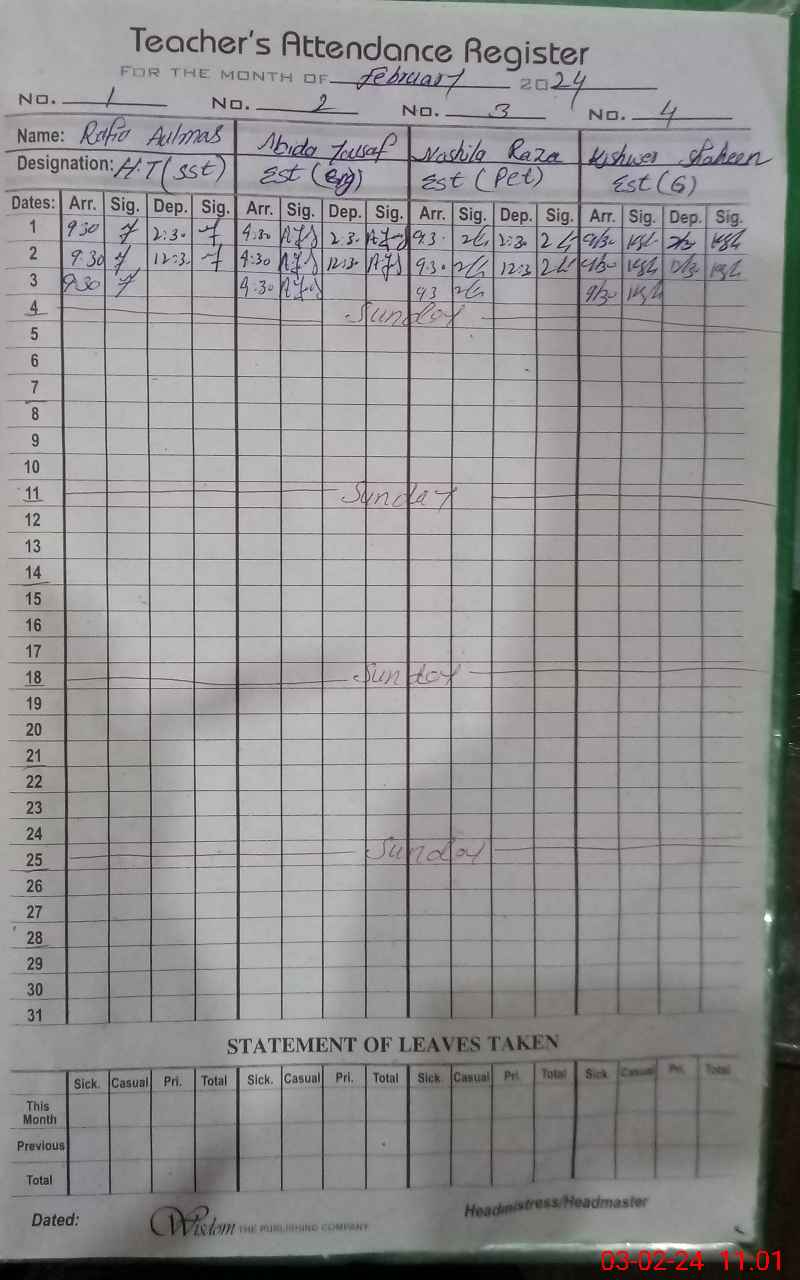 Teacher's Attendance Register
FOR THE MONTH OF February 2024
No. 1 No. 2 No. 3 No. 4
Name: Abida Yousaf Raza Kishwer Shaheen
Designation: H.T (SST) Est (Eng) Est (Pet) Est (G)
Dates: Arr. Sig. Dep. Sig. Arr. Sig. Dep. Sig. Arr. Sig. Dep. Sig. Arr. Sig. Dep. Sig.
1 9:30 2:30 9:30 2:30 9:30 2:30 9:30
2 9:30 12:3 9:30 12:3 9:30 12:3 9:30
3 9:30 9:30 9:3 9:30
4 Sunday
5
6
7
8
9
10
11 Sunday
12
13
14
15
16
17
18 Sunday
19
20
21
22
23
24
25 Sunday
26
27
28
29
30
31
STATEMENT OF LEAVES TAKEN
Sick. Casual Pri. Total Sick. Casual Pri. Total Sick. Casual Pri. Total Sick. Casual Pri. Total
This Month
Previous
Total
Dated: Wisdom THE PUBLISHING COMPANY Headmistress/Headmaster
03-02-24 11.01